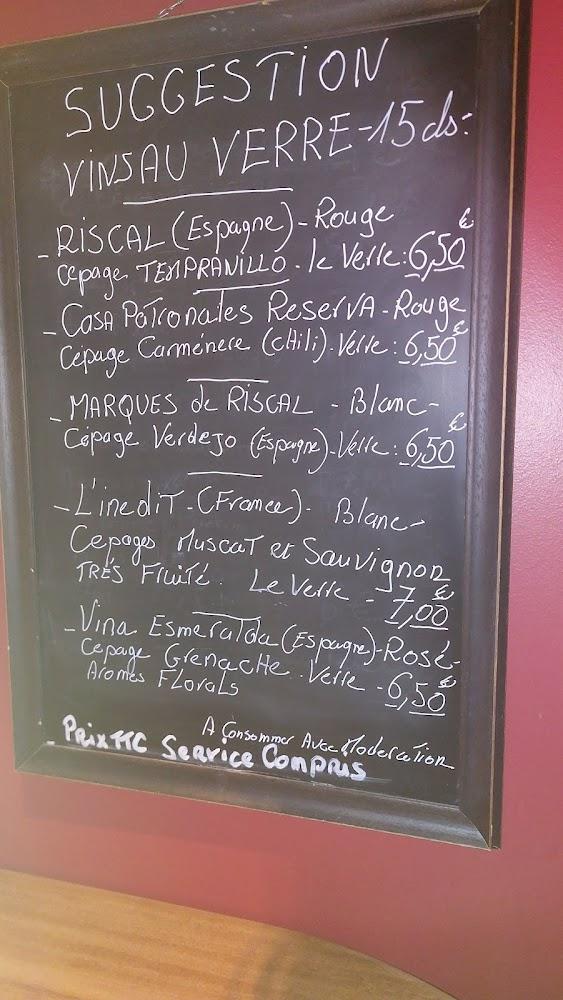 SUGGESTION
VINS AU VERRE - 15 cls:
- RISCAL (Espagne) - Rouge
Cépage TEMPRANILLO - le Verre : 6,50 €
- CASA PATRONALES RESERVA - Rouge
Cépage Carménère (CHILI) - Verre : 6,50 €
- MARQUES de RISCAL - Blanc -
Cépage Verdejo (Espagne) - Verre : 6,50 €
- L'inedit - (France) - Blanc -
Cepages Muscat et Sauvignon
TRÉS Fruité . Le Verre - 7,00 €
- Vina Esmeralda (Espagne) - Rosé -
Cepage Grenache . Verre - 6,50 €
Aromes Florals
A Consommer Avec Moderation
Prix TTC Service Compris